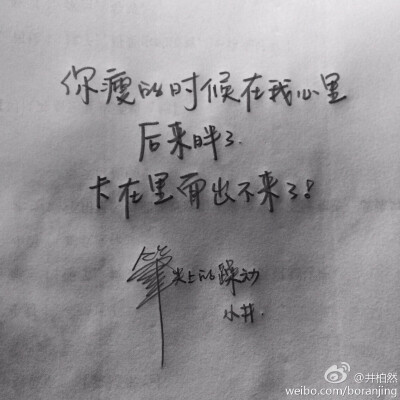 你瘦的时候在我心里
后来胖了.
卡在里面出不来了!
筆尖上的躁动
小井.
@井柏然
weibo.com/boranjing